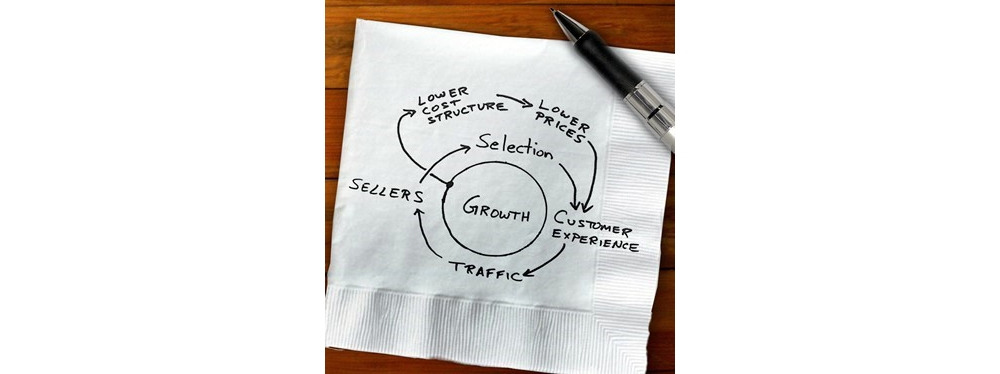 LOWER
COST
STRUCTURE
LOWER
PRICES
Selection
SELLERS
GROWTH
CUSTOMER
EXPERIENCE
TRAFFIC